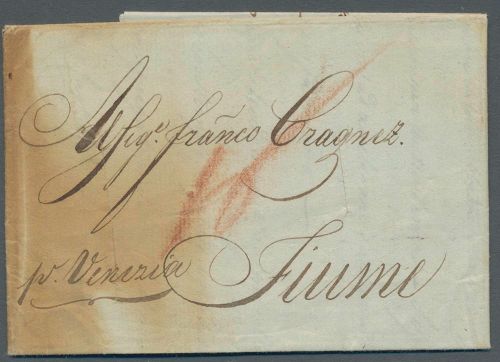 Al Sigr. franco Cragnez.
pr. Venezia Fiume